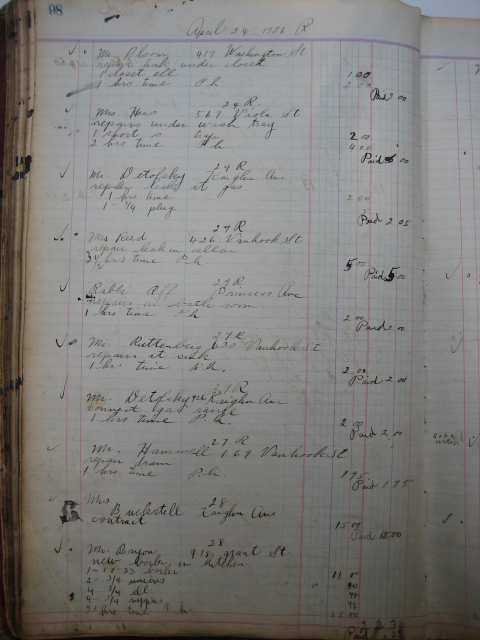 98
April 24 1926 R
Mr. Bloom 419 Washington St
repair leak under closet
1 closet ell 1 00
1 hrs time P.h 2 00
Paid 3.00
24 R.
Mrs Hess 567 Viola St
repairs under wash tray
1 short s trap 2 00
2 hrs time P.h 4 00
Paid 6 00
24 R
Mr. Detofsky Kaighn Ave
repair leak at gas
1 hrs time 2 00
1 - 1/4 plug
Paid 2 05
27 R
Mrs Reed 426 Vanhook St
repair leak in cellar
hrs time P.h 5 00
Paid 5 00
27 R.
Rabbi Princess Ave
repairs in bath room
1 hrs time P.h 2 00
Paid 2 00
27 R.
Mr. Ruttenberg 630 Vanhook St
repairs at sink
1 hrs time P.h. 2 00
Paid 2 00
27 R
Mr. Detofsky Kaighn Ave
connect gas range
1 hrs time P.h. 2 00
Paid 2.00
27 R
Mr. Hammell 169 Vanhook St
repair drain
1 hrs time P.h. 1 75
Paid 1 75
28
Mrs
Kaighn Ave
contract 15 00
Paid 15.00
28
Mr. Bryon 910 grant St
new boiler in kitchen
boiler 11 00
2 - 3/4 unions 90
4 - 3/4 ell
4 - 3/4 nipples
hrs time P.h